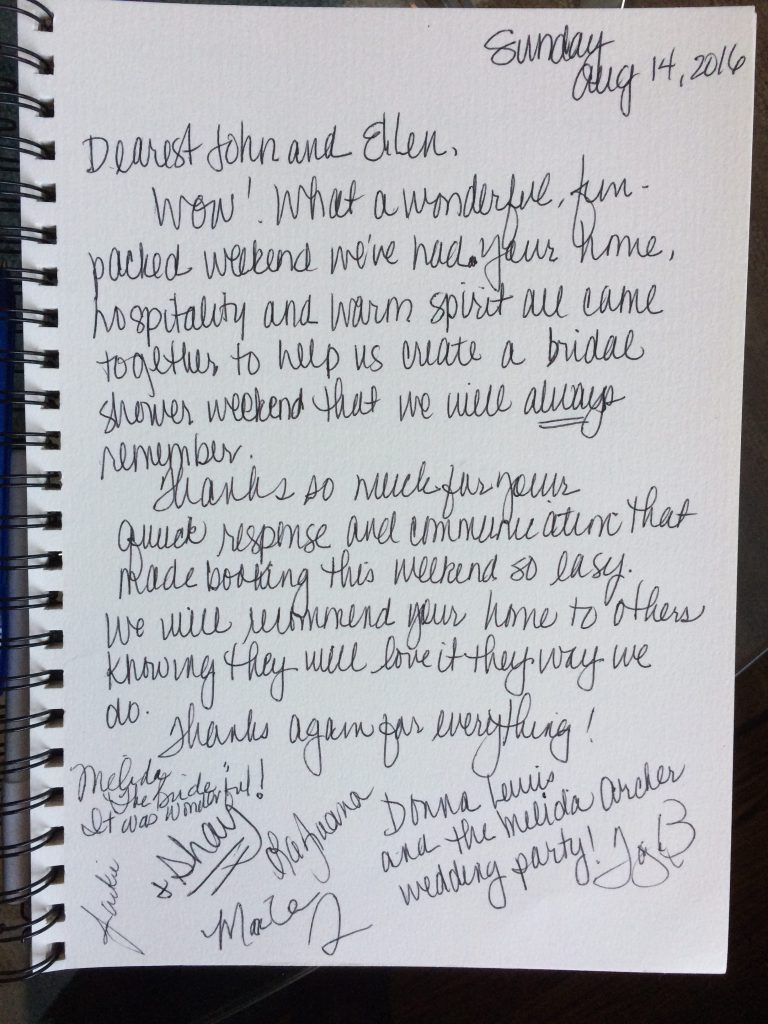 Sunday
Aug 14, 2016
Dearest John and Ellen,
Wow! What a wonderful, fun-
packed weekend we've had. Your home,
hospitality and warm spirit all came
together to help us create a bridal
shower weekend that we will always
remember.
Thanks so much for your
quick response and communication that
made booking this weekend so easy.
We will recommend your home to others
knowing they will love it they way we
do.
Thanks again for everything!
Melida
"The Bride"
It was wonderful!
Donna Lewis
and the Melida Archer
wedding party!
& Shay
LaTuana
Jackie